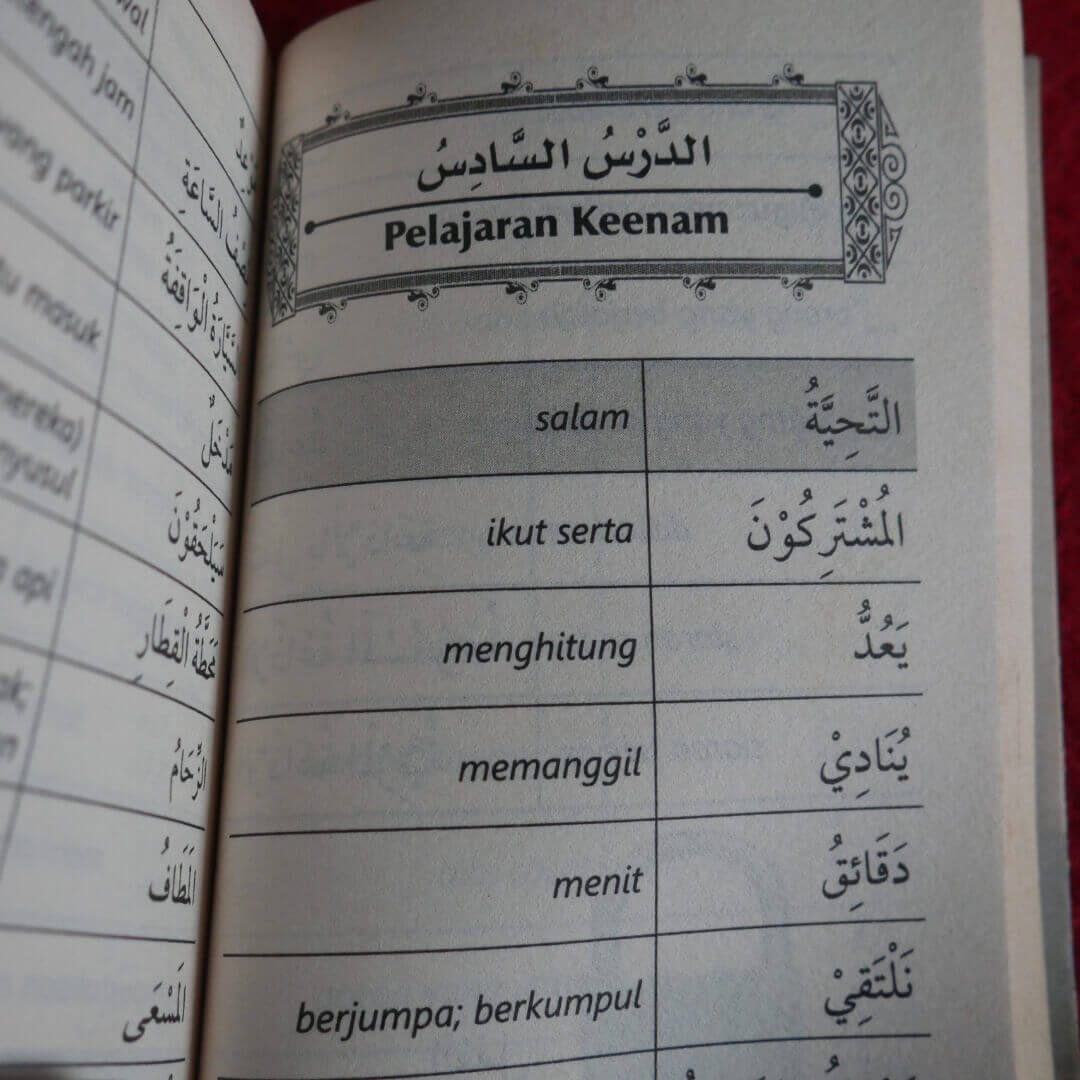 wal
engah jam
yang parkir
masuk
mereka)
api
السَّاعَةِ
السَّيَّارَةُ الْوَاقِفَةُ
مَدْخَلٌ
سَيَلْحَقُوْنَ
مَحَطَّةُ الْقِطَارِ
الزِّحَامُ
المَطَافُ
المَسْعَى
الدَّرْسُ السَّادِسُ
Pelajaran Keenam
التَّحِيَّةُ salam
المُشْتَرِكُوْنَ ikut serta
يَعُدُّ menghitung
يُنَادِيْ memanggil
دَقَائِقُ menit
نَلْتَقِيْ berjumpa; berkumpul